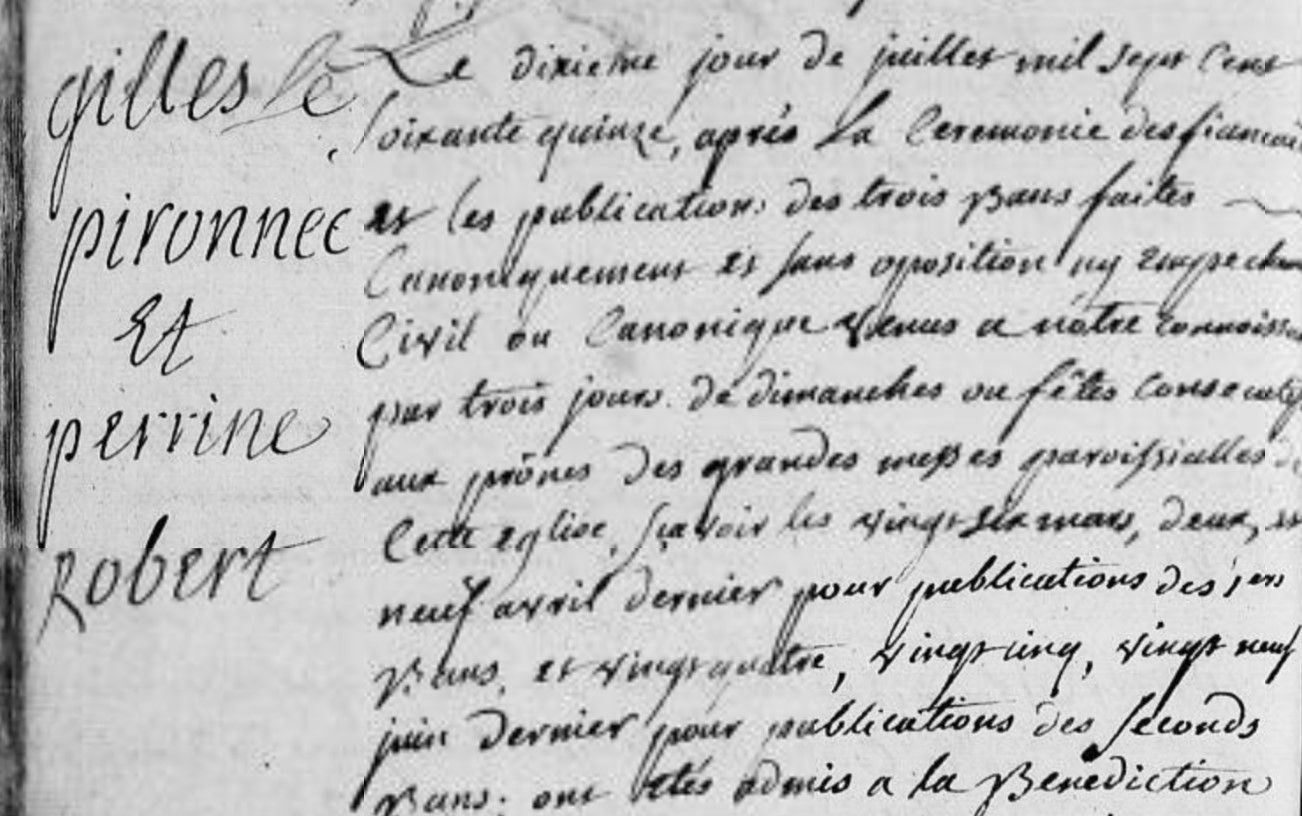 gilles le
pironnec
Et
perrine
Robert
Le dixieme jour de juillet mil sept Cent
soixante quinze, aprés la Ceremonie des fiancai
et les publications des trois Bans faites
Canoniquement et sans oposition ny Empeche
Civil ou Canonique venus a nôtre connoiss
par trois jours de dimanches ou fêtes Consecutifs
aux prônes des grandes messes paroissialles de
Cette eglise, sçavoir les vingt six mars, deux, et
neuf avril dernier pour publications des 1ers
Bans, et vingt quatre, vingt cinq, vingt neuf
juin dernier pour publications des seconds
Bans, ont etés admis a la Benediction